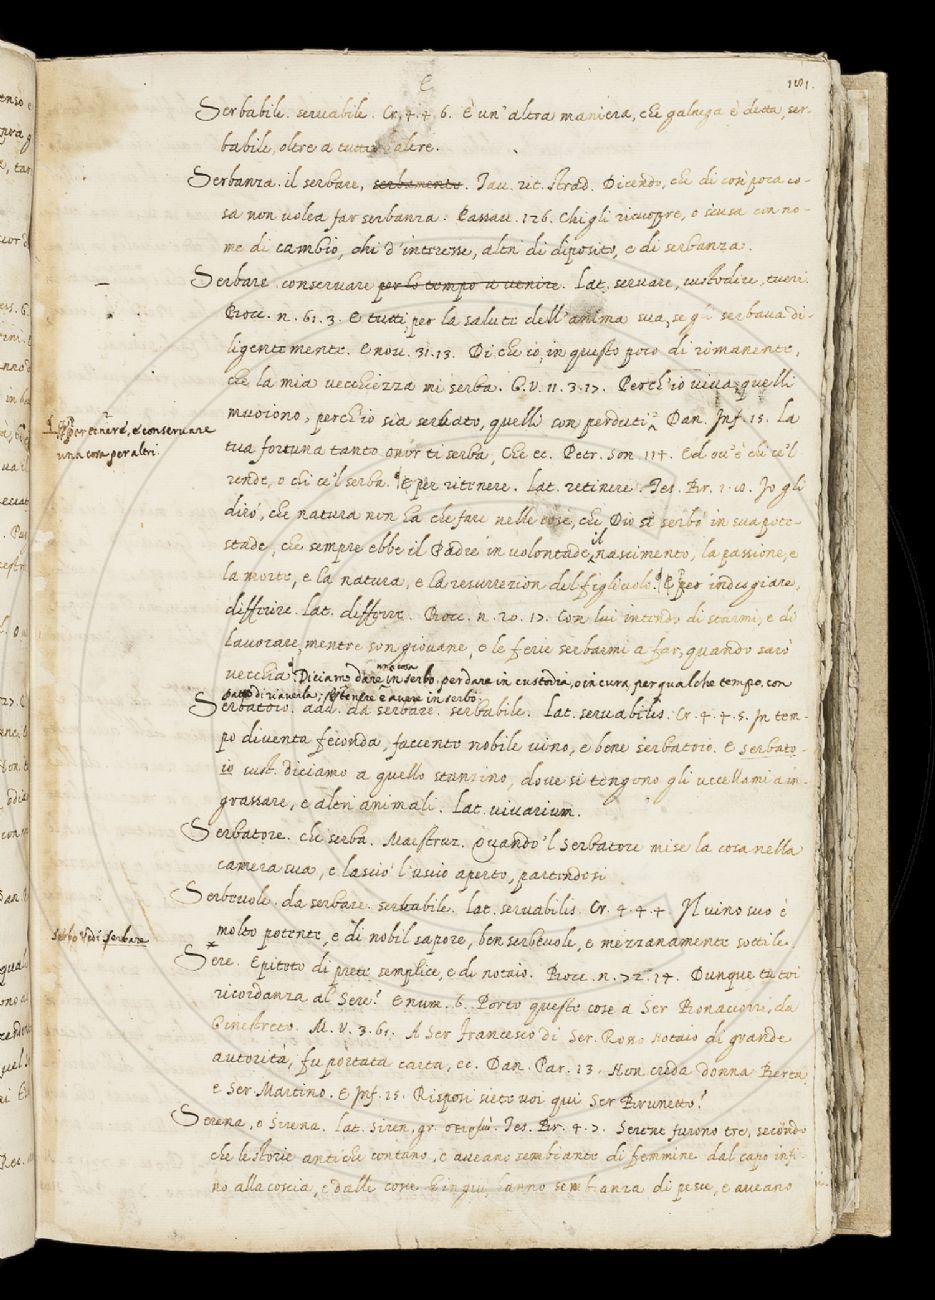 181.
Serbabile. seruabile. Cr. 4. 4. 6. E un'altra maniera, che galnega è detta, ser-
babile, oltre a tutte l'altre.
Serbanza. il serbare, serbamento. Tau. rit. Strad. Dicendo, che di così poca co-
sa non volea far serbanza. Passau. 126. Chi gli ricuopre, e scusa con no-
me di cambio, chi d'interesse, altri di diposito, e di serbanza.
Serbare. conseruare per lo tempo a venire. Lat. seruare, custodire, tueri.
Bocc. n. 61. 3. E tutti, per la salute dell'anima sua, se gli serbaua di-
ligentemente. E nou. 31. 13. Di che io, in questo poco di rimanente,
che la mia vecchiezza mi serba. G. V. 11. 3. 17. Perch'io viua, quelli
muoiono, perch'io sia serbato, quelli son perduti. Dan. Inf. 15. La
per tenere, e conseruare
una cosa per altri.
tua fortuna tanto onor ti serba, Che ec. Petr. Son. 114. Ed ou'è chi ce'l
rende, o chi ce'l serba. E per ritenere. Lat. retinere. Tes. Br. 1. Io gli
dirò, che natura non ha che fare nelle cose, che Dio si serbò in sua pote-
stade, che sempre ebbe il Padre in volontade, il nascimento, la passione, e
la morte, e la natura, e la resurrezion del figliuolo. E per indugiare,
differire. lat. differre. Bocc. n. 20. 17. Con lui intendo di starmi, e di
lauorare, mentre son giouane, e le ferie serbarmi a far, quando sarò
vecchia. Diciamo dare una cosa in serbo, per dare in custodia, o in cura, per qualche tempo, con
patto di riauerla; tenere e auere in serbo.
Serbatoio. add. da serbare. serbabile. Lat. seruabilis. Cr. 4. 4. 5. In tem-
po diuenta feconda, faccente nobile vino, e bene serbatoio. E serbato-
io sust. diciamo a quello stanzino, doue si tengono gli uccellami a in-
grassare, e altri animali. Lat. viuarium.
Serbatore. che serba. Maestruz. Quando'l Serbatore mise la cosa nella
camera sua, e lasciò l'uscio aperto, partendosi
Serbeuole. da serbare. serbabile. lat. seruabilis. Cr. 4. 4. 4. Il vino suo è
molto potente, e di nobil sapore, ben serbeuole, e mezzanamente sottile.
Serbo Vedi Serbare
Sere. Epiteto di prete semplice, e di notaio. Bocc. n. 72. 14. Dunque tu toi
ricordanza al Sere? E num. 6. Porto queste cose a Ser Bonaccorri, da
Ginestreto. M. V. 3. 61. A Ser Francesco di Ser Rono notaio di grande
autorità, fu portata carta, ec. Dan. Par. 13. Non creda donna Berta,
e Ser Martino. E Inf. 15. Risposi siete voi qui Ser Brunetto?
Serena, o Sirena. lat. Siren, gr. Tes. Br. 4. 7. Serene furono tre, secondo
che le storie antiche contano, e aueano sembianze di femmine dal capo infi-
no alla coscia, e dalle coscie in giù, sembianza di pesce, e aueano